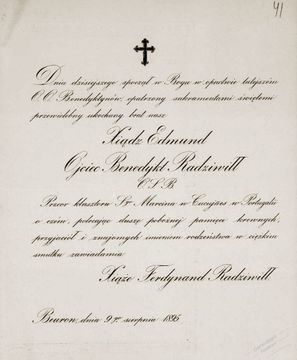 41
Dnia dzisiejszego spoczął w Bogu w opactwie tutejszem
O.O. Benedyktynów, opatrzony sakramentami świętemi
przewielebny ukochany brat nasz
Xiądz Edmund
Ojciec Benedykt Radziwiłł
O.S.B.
Przeor klasztoru Św Marcina w Cucujães w Portugalii
o czem, polecając duszę pobożnej pamięci krewnych,
przyjaciół i znajomych imieniem rodzeństwa w ciężkim
smutku zawiadamia
Xiąże Ferdynand Radziwiłł
Beuron, dnia 9go sierpnia 1895